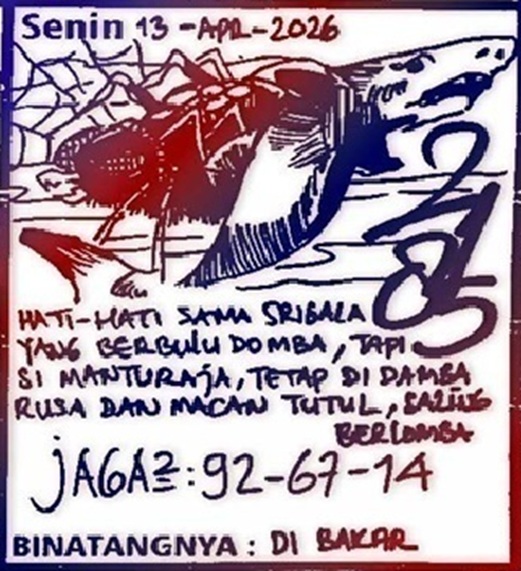 Senin 13 -APR-2026
HATI-HATI SAMA SRIGALA
YANG BERBULU DOMBA, TAPI
SI MANTURAJA, TETAP DI DAMBA
RUSA DAN MACAN TUTUL, SALING
BERLOMBA
JAGA2:92-67-14
BINATANGNYA : DI BAKAR